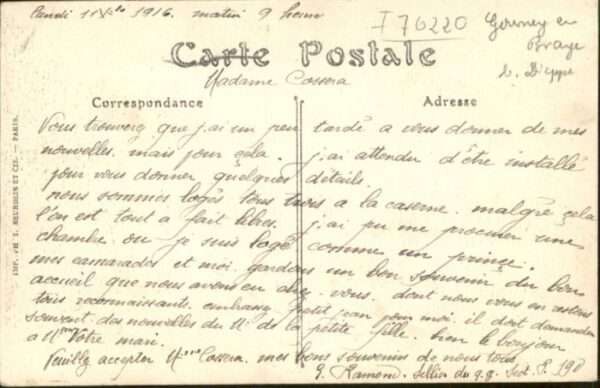 Lundi 11 Xbre 1916. matin 9 heures
I 76220 Gourney en
Braye
b. Dieppe
Carte Postale
Madame Cossera
Correspondance
Adresse
Vous trouverez que j'ai un peu tardé a vous donner de mes
nouvelles. mais pour çela. j'ai attendu d'être installé
pour vous donner quelques détails.
nous sommes logés tous trois a la caserne. malgrè çela
l'on est tout a fait libres. j'ai pu me procurer une
chambre. ou je suis logé comme un prince.
mes camarades et moi. gardons un bon souvenir du bon
accueil que nous avons eu chez vous. dont nous vous en
tous reconnaissants. embrassez petit jean pour moi. il doit demander
souvent des nouvelles du de la petite fille. bien le bonjour
a Mr Votre mari.
Veuillez accepter Mme Cossera. mes bons souvenirs de nous tous
G. Ramond. Sellier du Sect. P. 190
IMP. PH. L. NEURDEIN ET CIE. — PARIS.